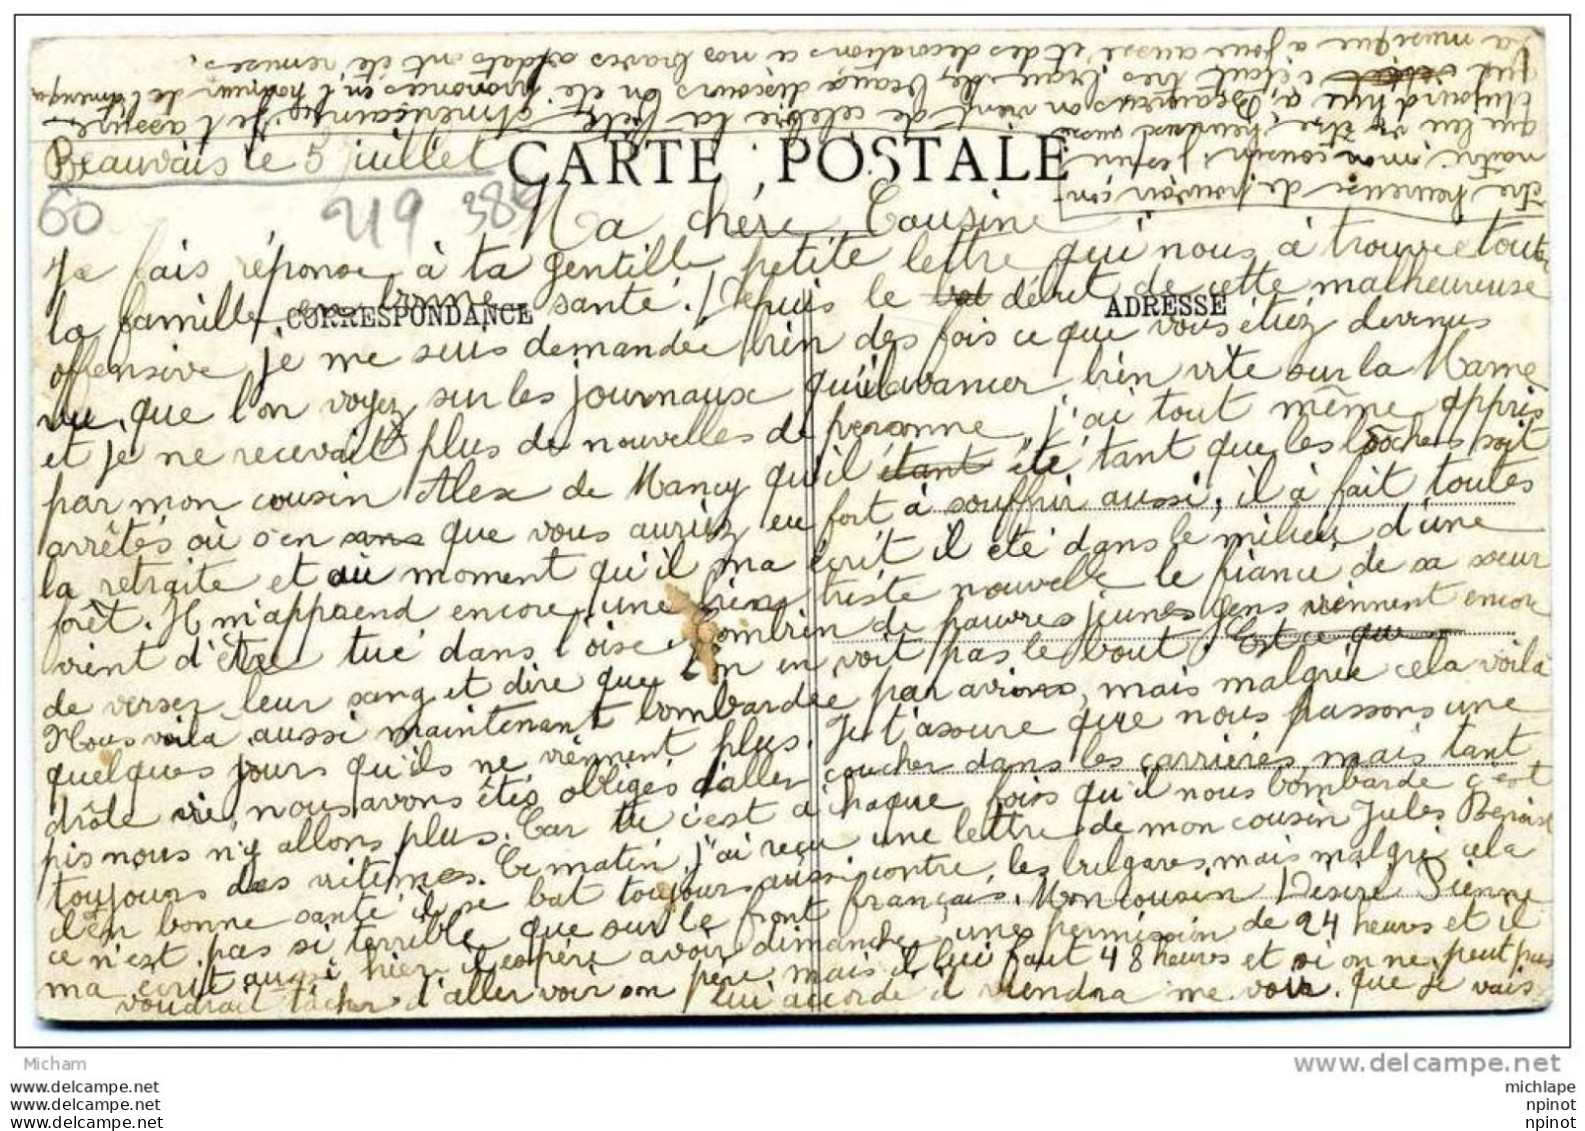 Beauvais le 5 juillet
CARTE POSTALE
60
219 386
Ma chére Cousine
Je fais réponse à ta gentille petite lettre qui nous à trouvée toute
la famille en bonne santé. Depuis le début de cette malheureuse
CORRESPONDANCE
ADRESSE
offensive je me suis demandée bien des fois ce que vous étiez devenus
vu que l'on voyez sur les journaux qu'il avancer bien vite sur la Marne
et je ne recevait plus de nouvelles de personne, j'ai tout même appris
par mon cousin Alex de Nancy qu'il étant été tant que les boches soit
arrêtés où s'en sans que vous auriez eu fort à souffrir aussi, il à fait toutes
la retraite et au moment qu'il ma écrit il été dans le milieu d'une
forêt. Il m'apprend encore une bien triste nouvelle le fiancé de sa soeur
vient d'être tué dans l'oise Combien de pauvres jeunes gens viennent encore
de verser leur sang et dire que l'on en voit pas le bout. Est ce que
Nous voila aussi maintenant bombardée par avions, mais malgrée cela voilà
quelques jours qu'ils ne viennent plus. Je t'assure que nous passons une
drôle vie, nous avons êtés obligés d'aller coucher dans les carrières, mais tant
pis nous n'y allons plus. Car tu c'est à chaque fois qu'il nous bombarde c'est
toujours des vitimes. Ce matin j'ai reçu une lettre de mon cousin Jules Benoist
il en bonne santé il se bat toujours aussi contre les bulgares, mais malgré cela
ce n'est pas si terrible que sur le front français. Mon cousin Désiré Pienne
ma écrit aussi hier il espére avoir dimanche une permission de 24 heures et il
voudrait tâcher d'aller voir son père, mais il lui faut 48 heures et si on ne peut pas
lui accorde il viendra me voir. Que je vais
être heureuse de pouvoir con
naitre mon cousin j'espère
qu leu va être heureux aussi
Aujourd'hui à Beauvais on vient de celebré la fête Américaine je t'assure
que c'était très beau de beaux discours on été prononcés en l'honneur de l'amérique
La musique a joué aussi et des décorations a nos braves soldats ont été remises.
Micham
www.delcampe.net
www.delcampe.net
www.delcampe.net
www.delcampe.net
michlape
npinot
npinot